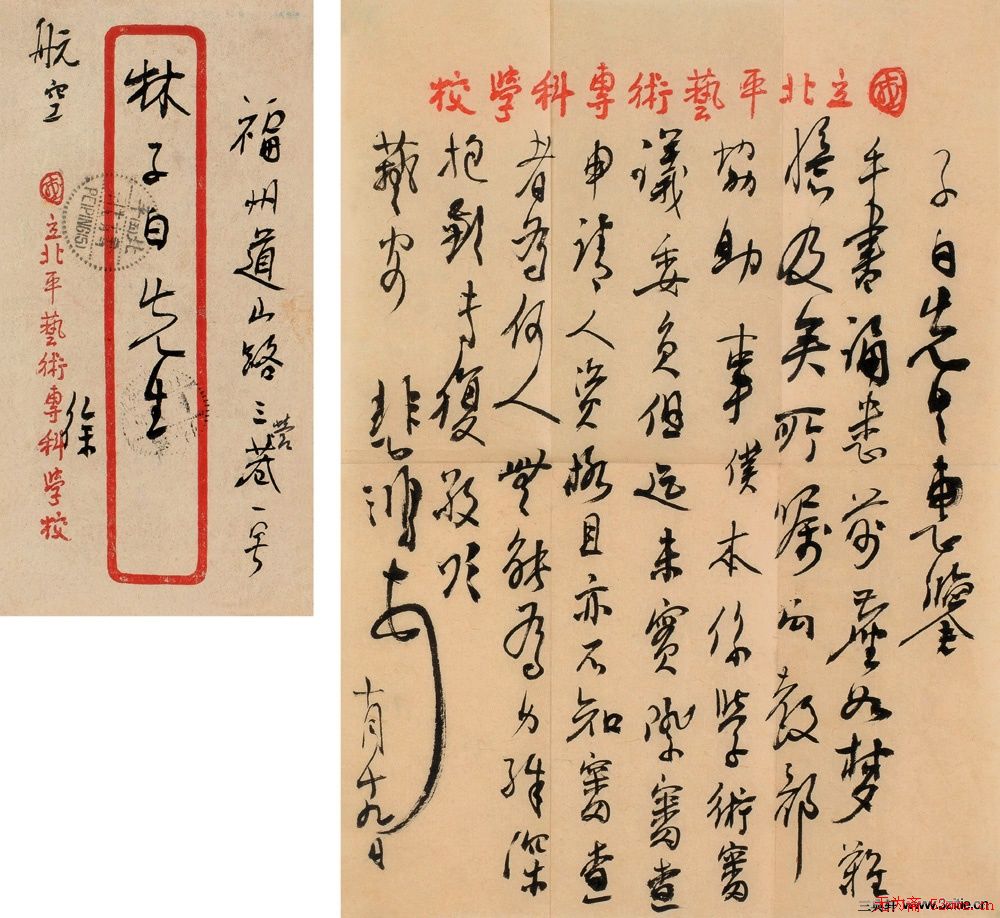 福州道山路三營巷一号
林子白先生
航空
國立北平藝術專科學校
徐
PEIPING(5)
國立北平藝術專科學校
子白先生惠鑒
手書誦悉前塵如夢難
憶及矣所囑向教部
協助事僕本係學術審
議委員但迄未實際審查
申請人資格且亦不知審查
者為何人無能為力殊深
抱歉専復敬頌
藝安
悲鴻
十月十九日
www.3zitie.cn